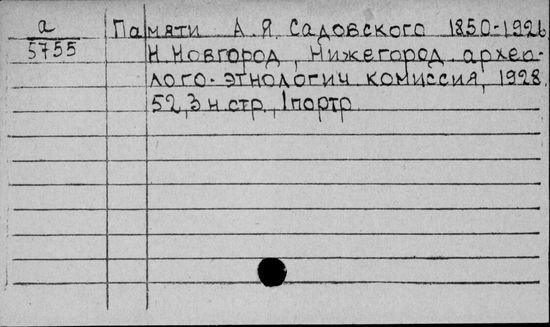 а
5755
Памяти А. Я. Садовского 1850-1926
Н. Новгород, Нижегород. архео-
лого-этнологич комиссия, 1928
52, 3 н. стр., 1 портр